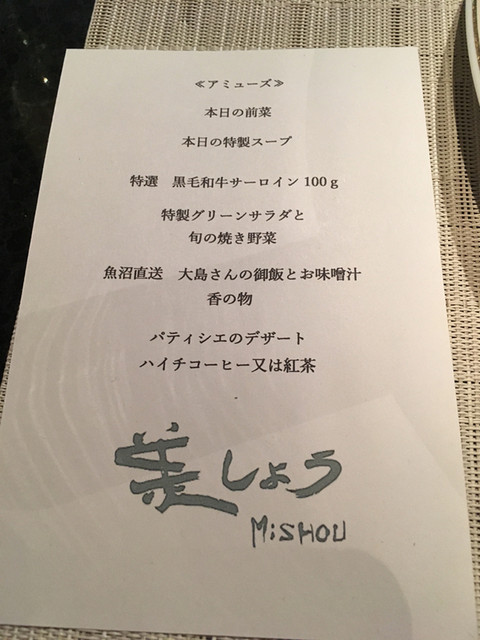 ≪アミューズ≫
本日の前菜
本日の特製スープ
特選　黒毛和牛サーロイン100g
特製グリーンサラダと
旬の焼き野菜
魚沼直送　大島さんの御飯とお味噌汁
香の物
パティシエのデザート
ハイチコーヒー又は紅茶
美しょう
MiSHOU